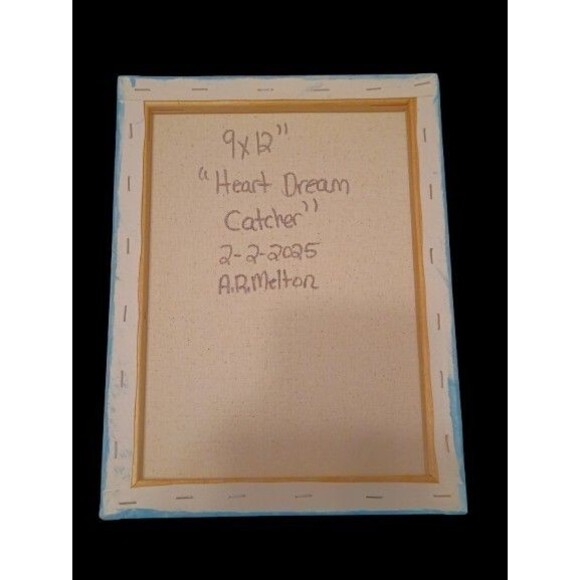 9x12"
"Heart Dream
Catcher"
2-2-2025
A.R.Melton